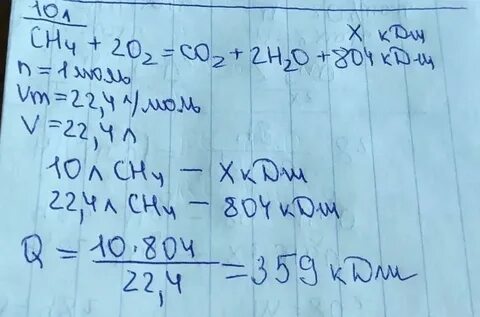 10л X кДж
CH4 + 2O2 = CO2 + 2H2O + 804 кДж
n = 1 моль
Vm = 22,4 л/моль
V = 22,4 л
10л CH4 — X кДж
22,4л CH4 — 804 кДж
Q = 10·804 / 22,4 = 359 кДж